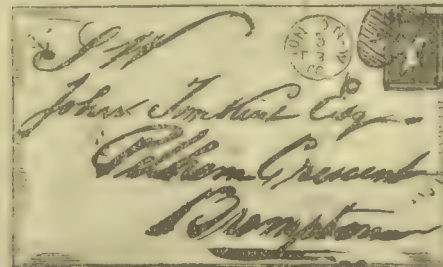 S.W.
John Timkins Esq
Pelham Crescent
Brompton